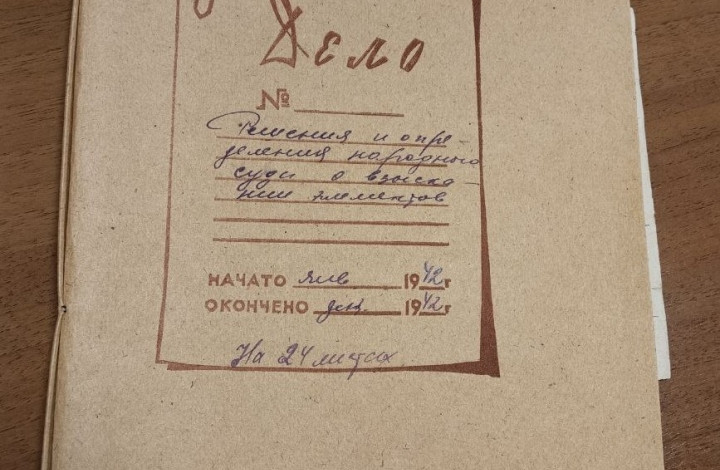 Дело
№
Решения и опре-
деления народного
суда о взыска-
нии элементов
НАЧАТО янв 1942г
ОКОНЧЕНО дек 1942г
На 24 листах